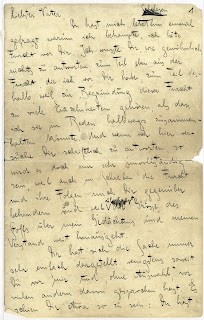 1
Liebster Vater
Du hast mich letzthin einmal
gefragt, warum ich behaupte, ich hätte
Furcht vor Dir. Ich wusste Dir, wie gewöhnlich,
nichts zu antworten, zum Teil eben aus der
Furcht die ich vor Dir habe, zum Teil des-
halb weil zur Begründung dieser Furcht
zu viele Einzelnheiten gehören, als dass
ich sie im Reden halbwegs zusammen-
halten könnte. Und wenn ich hier ver-
suche Dir schriftlich zu antworten, so
wird es doch nur sehr unvollständig
sein, weil auch im Schreiben die Furcht
und ihre Folgen mich Dir gegenüber
behindern und weil die Grösse des
Stoffs über mein Gedächtnis und meinen
Verstand weit hinausgeht.
Dir hat sich die Sache immer
sehr einfach dargestellt, wenigstens soweit
Du vor mir und, ohne Auswahl, vor
vielen andern davon gesprochen hast. Es
schien Dir etwa so zu sein: Du hast